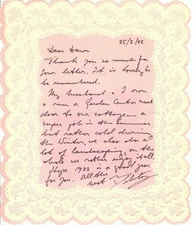 25/2/82
Dear Dawn
Thank you so much for
your letter. It is lovely to
be remembered.
My husband & I own
& run a Garden Centre next
door to our cottage — a
super job in the summer
but rather cold during
the Winter, we also do a
lot of landscaping, on the
whole we rather enjoy it all
Hope 1982 is a good year
for you. All the
best